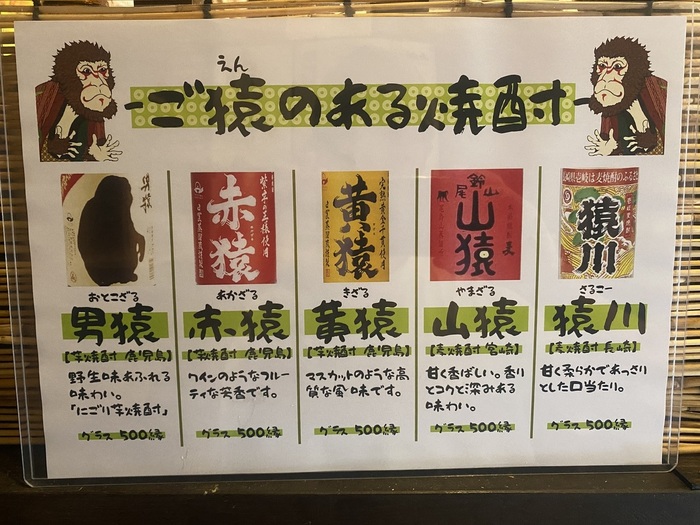 えん
ご猿のある焼酎
男猿
赤猿
紫芋の王様使用
黄猿
鈴山
尾
山猿
麦
長崎県壱岐は麦焼酎のふるさと
猿川
おとこざる
男猿
【芋焼酎 鹿児島】
野生味あふれる
味わい。
「にごり芋焼酎」
グラス 500縁
あかざる
赤猿
【芋焼酎 鹿児島】
ワインのようなフルー
ティな芳香です。
グラス 500縁
きざる
黄猿
【芋焼酎 鹿児島】
マスカットのような高
貴な風味です。
グラス 500縁
やまざる
山猿
【麦焼酎 宮崎】
甘く香ばしい。香り
とコクと深みある
味わい。
グラス 500縁
さるこー
猿川
【麦焼酎 長崎】
甘く柔らかであっさり
とした口当たり。
グラス 500縁